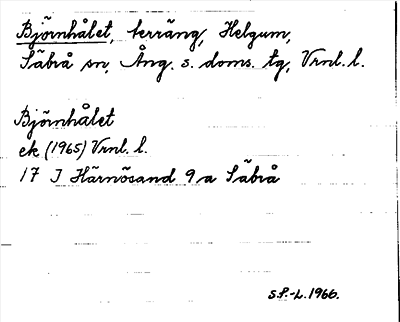 Björnhålet, terräng, Helgum,
Säbrå sn, Ång. s. doms. tg, Vrnl. l.
Björnhålet
ek (1965) Vrnl. l.
17 I Härnösand 9 a Säbrå
S.P.-L. 1966.